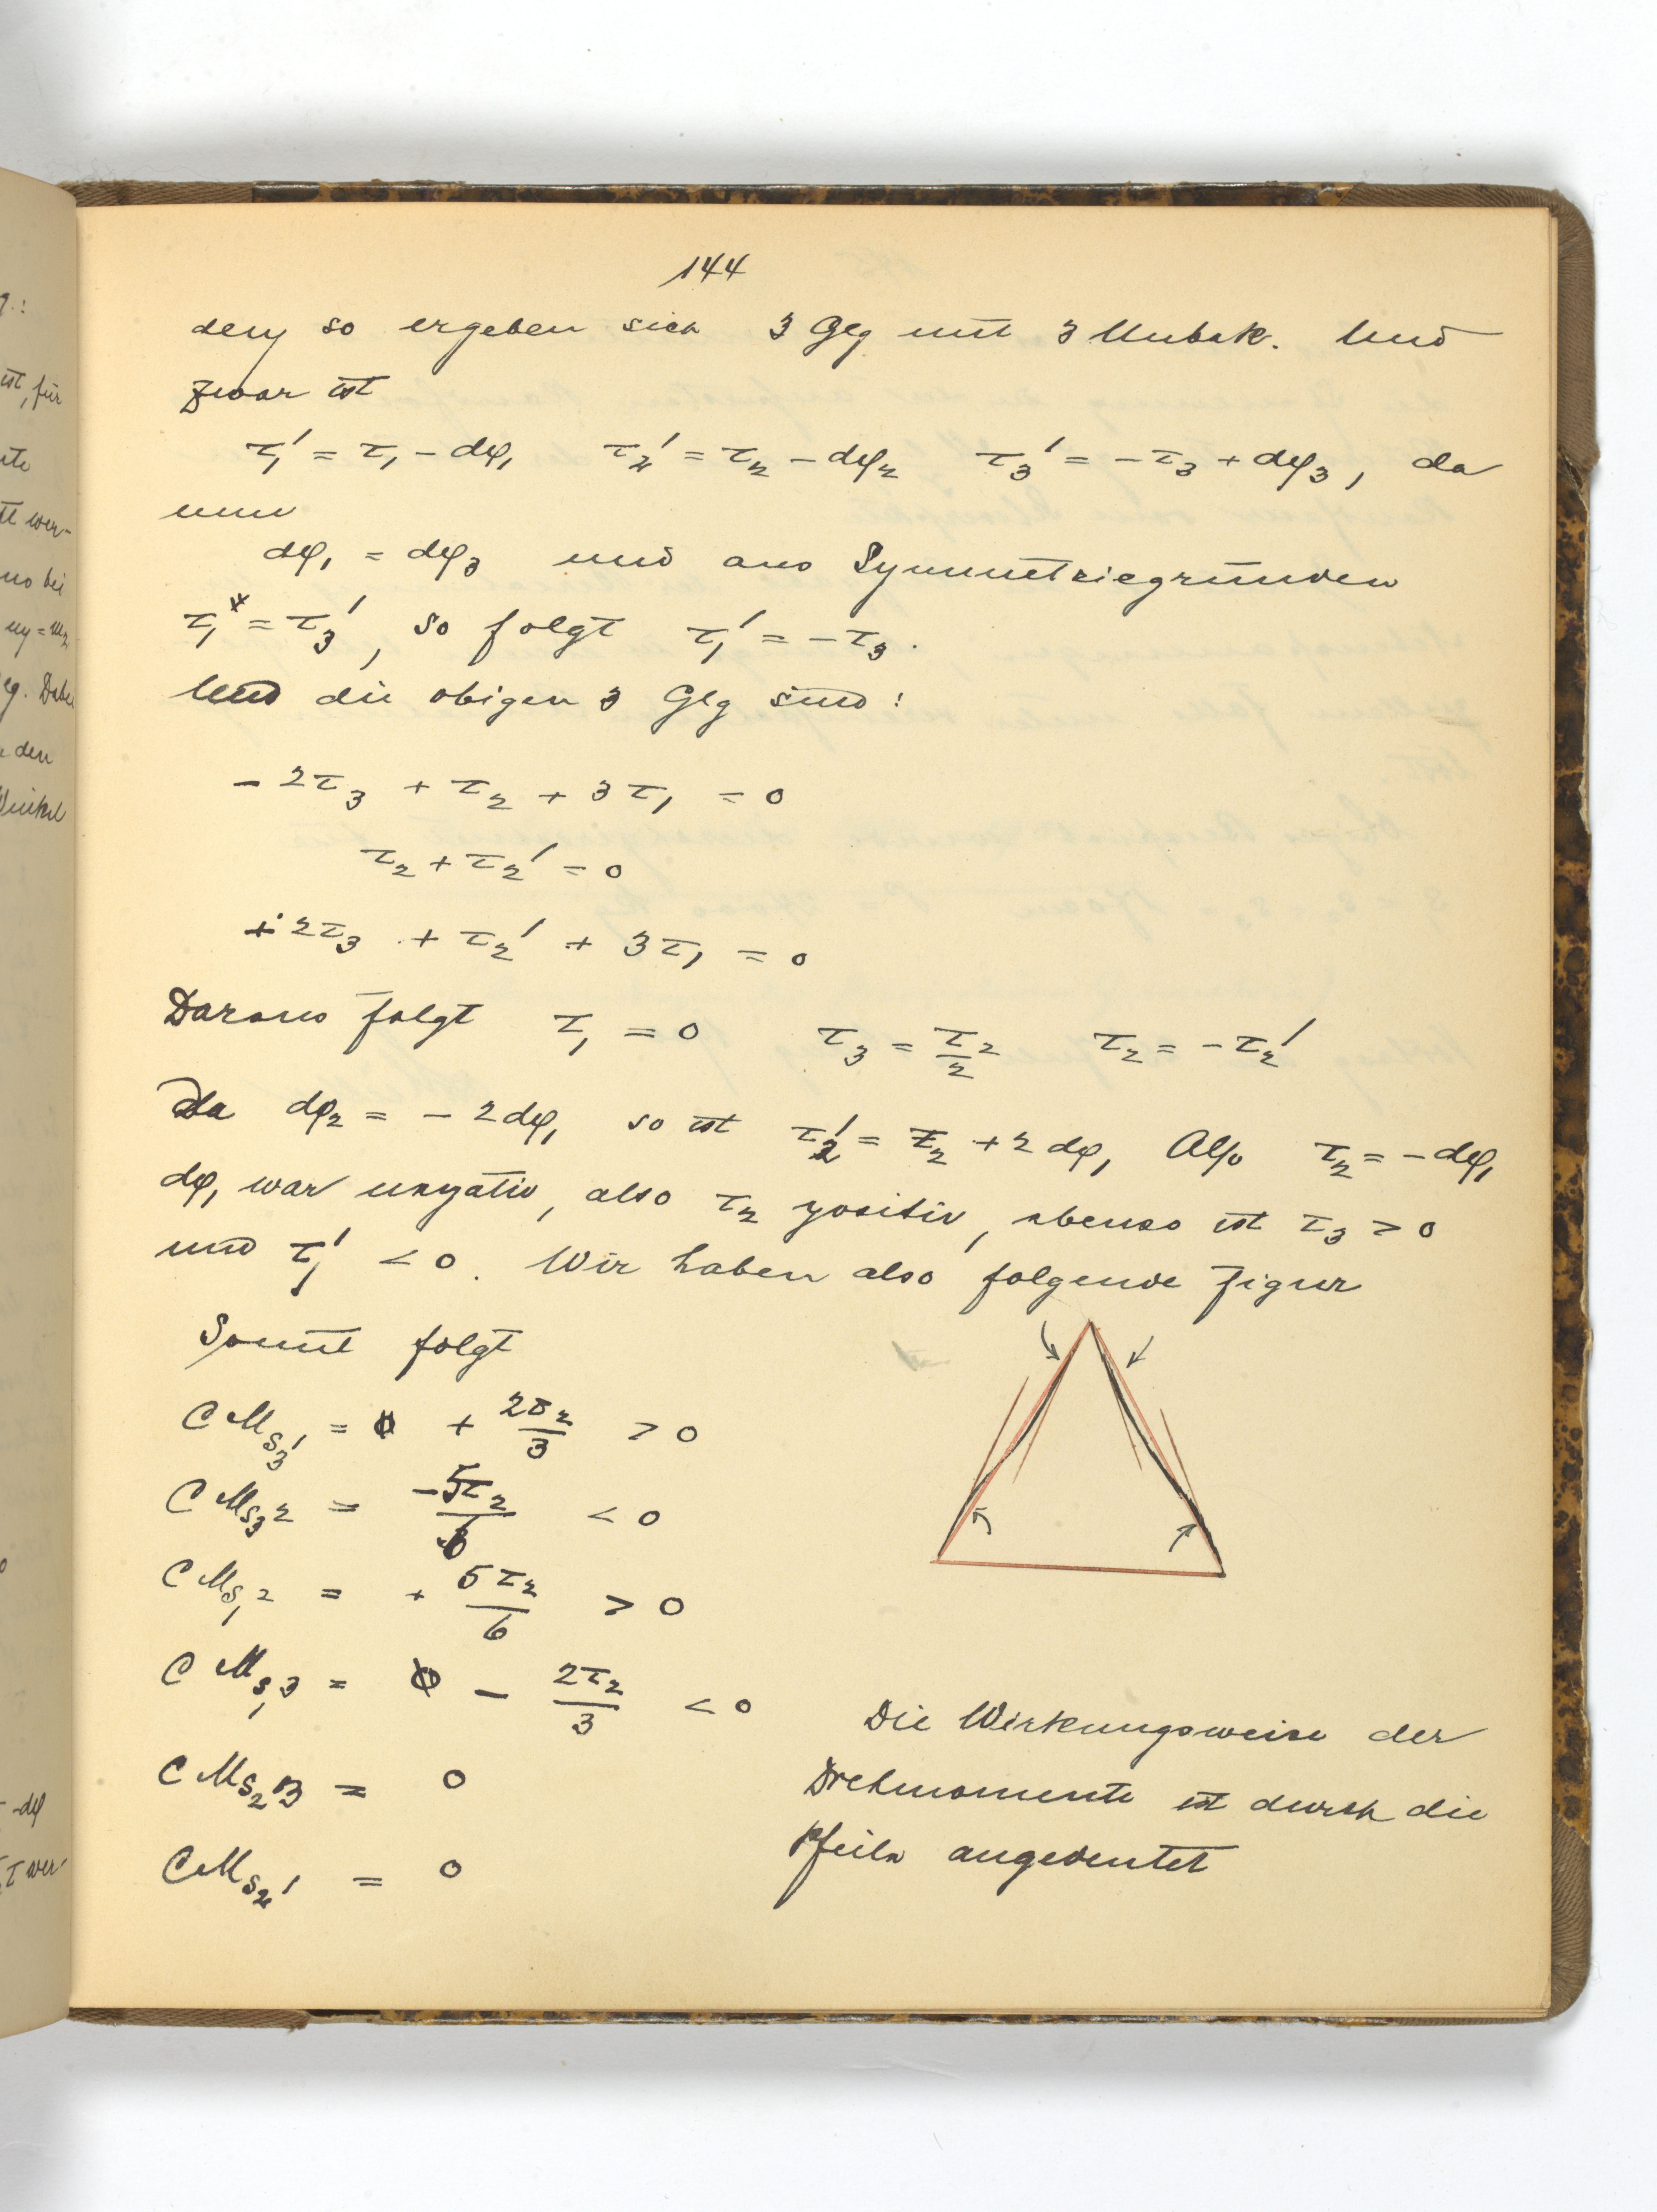 144
so ergeben sich 3 Glg mit 3 Unbek. Und
zwar ist
τ₁' = τ₁ - dφ₁ τ₂' = τ₂ - dφ₂ τ₃' = -τ₃ + dφ₃, da
nun
dφ₁ = dφ₃ und aus Symmetriegründen
τ₁ = τ₃', so folgt τ₁' = -τ₃.
Und die obigen 3 Glg sind:
- 2τ₃ + τ₂ + 3τ₁ = 0
τ₂ + τ₂' = 0
+ 2τ₃ + τ₂' + 3τ₁ = 0
Daraus folgt τ₁ = 0 τ₃ = τ₂/2 τ₂ = -τ₂'
Da dφ₂ = - 2dφ₁ so ist τ₂' = τ₂ + 2dφ₁ Also τ₂ = -dφ₁
dφ₁ war negativ, also τ₂ positiv, ebenso ist τ₃ > 0
und τ₁' < 0. Wir haben also folgende Figur
Somit folgt
C M_{S₃1} = 0 + 2τ₂/3 > 0
C M_{S₃2} = -5τ₂/6 < 0
C M_{S₁2} = + 5τ₂/6 > 0
C M_{S₁3} = 0 - 2τ₂/3 < 0
C M_{S₂3} = 0
C M_{S₂1} = 0
Die Wirkungsweise der
Drehmomente ist durch die
Pfeile angedeutet
ist, für
wer-
no bei
den
Winkel
-dφ
τ wer-